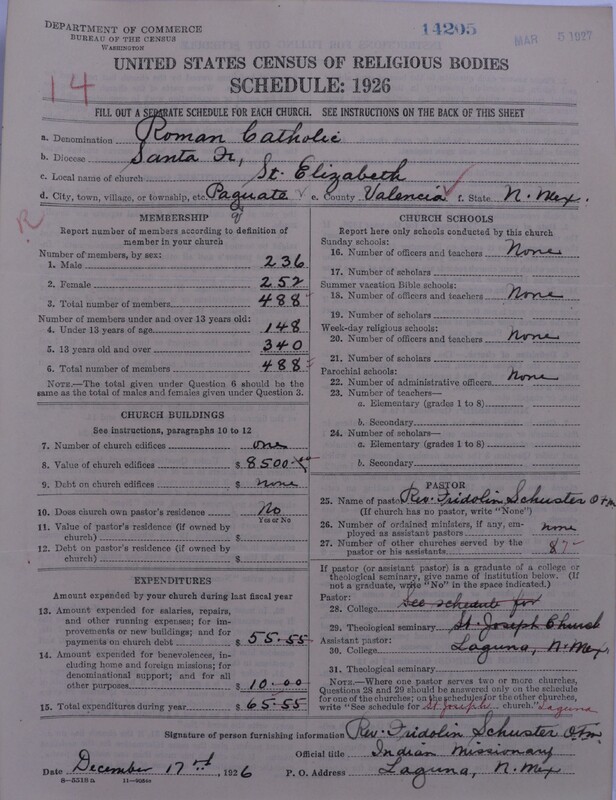 DEPARTMENT OF COMMERCE
BUREAU OF THE CENSUS
WASHINGTON
14205
MAR 5 1927
UNITED STATES CENSUS OF RELIGIOUS BODIES
SCHEDULE: 1926
14
FILL OUT A SEPARATE SCHEDULE FOR EACH CHURCH. SEE INSTRUCTIONS ON THE BACK OF THIS SHEET
a. Denomination Roman Catholic
b. Diocese Santa Fe,
c. Local name of church St. Elizabeth
d. City, town, village, or township, etc. Paguate e. County Valencia f. State N. Mex.
R
MEMBERSHIP
Report number of members according to definition of member in your church
Number of members, by sex:
1. Male 236
2. Female 252
3. Total number of members 488
Number of members under and over 13 years old:
4. Under 13 years of age 148
5. 13 years old and over 340
6. Total number of members 488
NOTE.—The total given under Question 6 should be the same as the total of males and females given under Question 3.
CHURCH BUILDINGS
See instructions, paragraphs 10 to 12
7. Number of church edifices one
8. Value of church edifices $ 8500.
9. Debt on church edifices $ none
10. Does church own pastor's residence No
Yes or No
11. Value of pastor's residence (if owned by church) $
12. Debt on pastor's residence (if owned by church) $
EXPENDITURES
Amount expended by your church during last fiscal year
13. Amount expended for salaries, repairs, and other running expenses; for improvements or new buildings; and for payments on church debt $ 55.55
14. Amount expended for benevolences, including home and foreign missions; for denominational support; and for all other purposes $ 10.00
15. Total expenditures during year $ 65.55
CHURCH SCHOOLS
Report here only schools conducted by this church
Sunday schools:
16. Number of officers and teachers None
17. Number of scholars
Summer vacation Bible schools:
18. Number of officers and teachers None
19. Number of scholars
Week-day religious schools:
20. Number of officers and teachers None
21. Number of scholars
Parochial schools:
22. Number of administrative officers None
23. Number of teachers—
a. Elementary (grades 1 to 8)
b. Secondary
24. Number of scholars—
a. Elementary (grades 1 to 8)
b. Secondary
PASTOR
25. Name of pastor Rev. Fridolin Schuster O.F.M.
(If church has no pastor, write "None")
26. Number of ordained ministers, if any, employed as assistant pastors none
27. Number of other churches served by the pastor or his assistants 8
If pastor (or assistant pastor) is a graduate of a college or theological seminary, give name of institution below. (If not a graduate, write "No" in the space indicated.)
Pastor:
28. College See schedule for
29. Theological seminary St. Joseph Church
Assistant pastor:
30. College Laguna, N. Mex.
31. Theological seminary
NOTE.—Where one pastor serves two or more churches, Questions 28 and 29 should be answered only on the schedule for one of the churches; on the schedules for the other churches, write "See schedule for St. Joseph church." Laguna
Signature of person furnishing information Rev. Fridolin Schuster O.F.M.
Official title Indian Missionary
Date December 17th, 1926 P. O. Address Laguna, N. Mex
8—5318a 11—9054